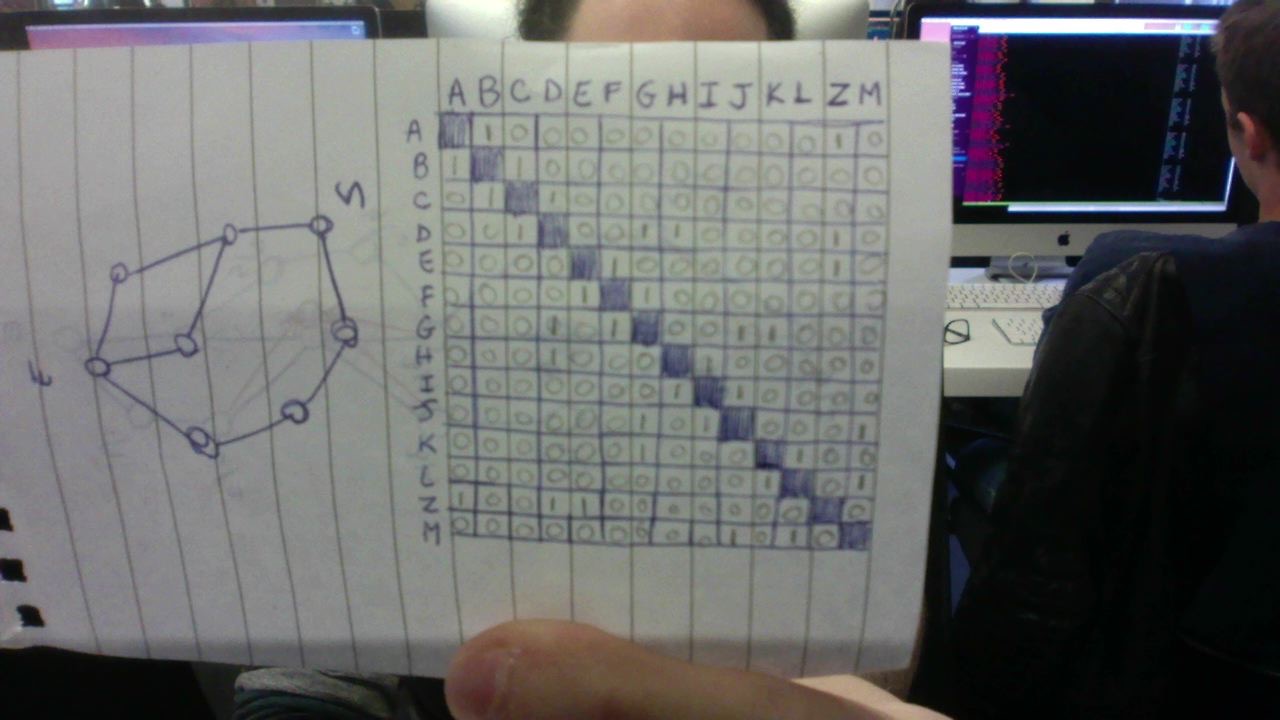 A B C D E F G H I J K L Z M
A 1 0 0 0 0 0 0 0 0 0 0 1 0
B 1 1 0 0 0 0 0 0 0 0 0 0 0
C 0 1 1 0 0 0 0 0 0 0 0 0 0
D 0 0 1 0 0 1 1 0 0 0 0 1 0
E 0 0 0 0 1 0 0 0 0 0 0 1 0
F 0 0 0 0 1 1 0 0 0 0 0 0 0
G 0 0 0 1 0 1 0 0 1 1 0 0 0
H 0 0 0 1 0 0 0 1 0 0 0 0 0
I 0 0 0 0 0 0 0 1 1 0 0 0 0
J 0 0 0 0 0 0 1 0 1 0 0 0 1
K 0 0 0 0 0 0 1 0 0 0 1 0 0
L 0 0 0 0 0 0 0 0 0 0 1 0 1
Z 1 0 0 1 1 0 0 0 0 0 0 0 0
M 0 0 0 0 0 0 0 0 0 1 0 1 0
S